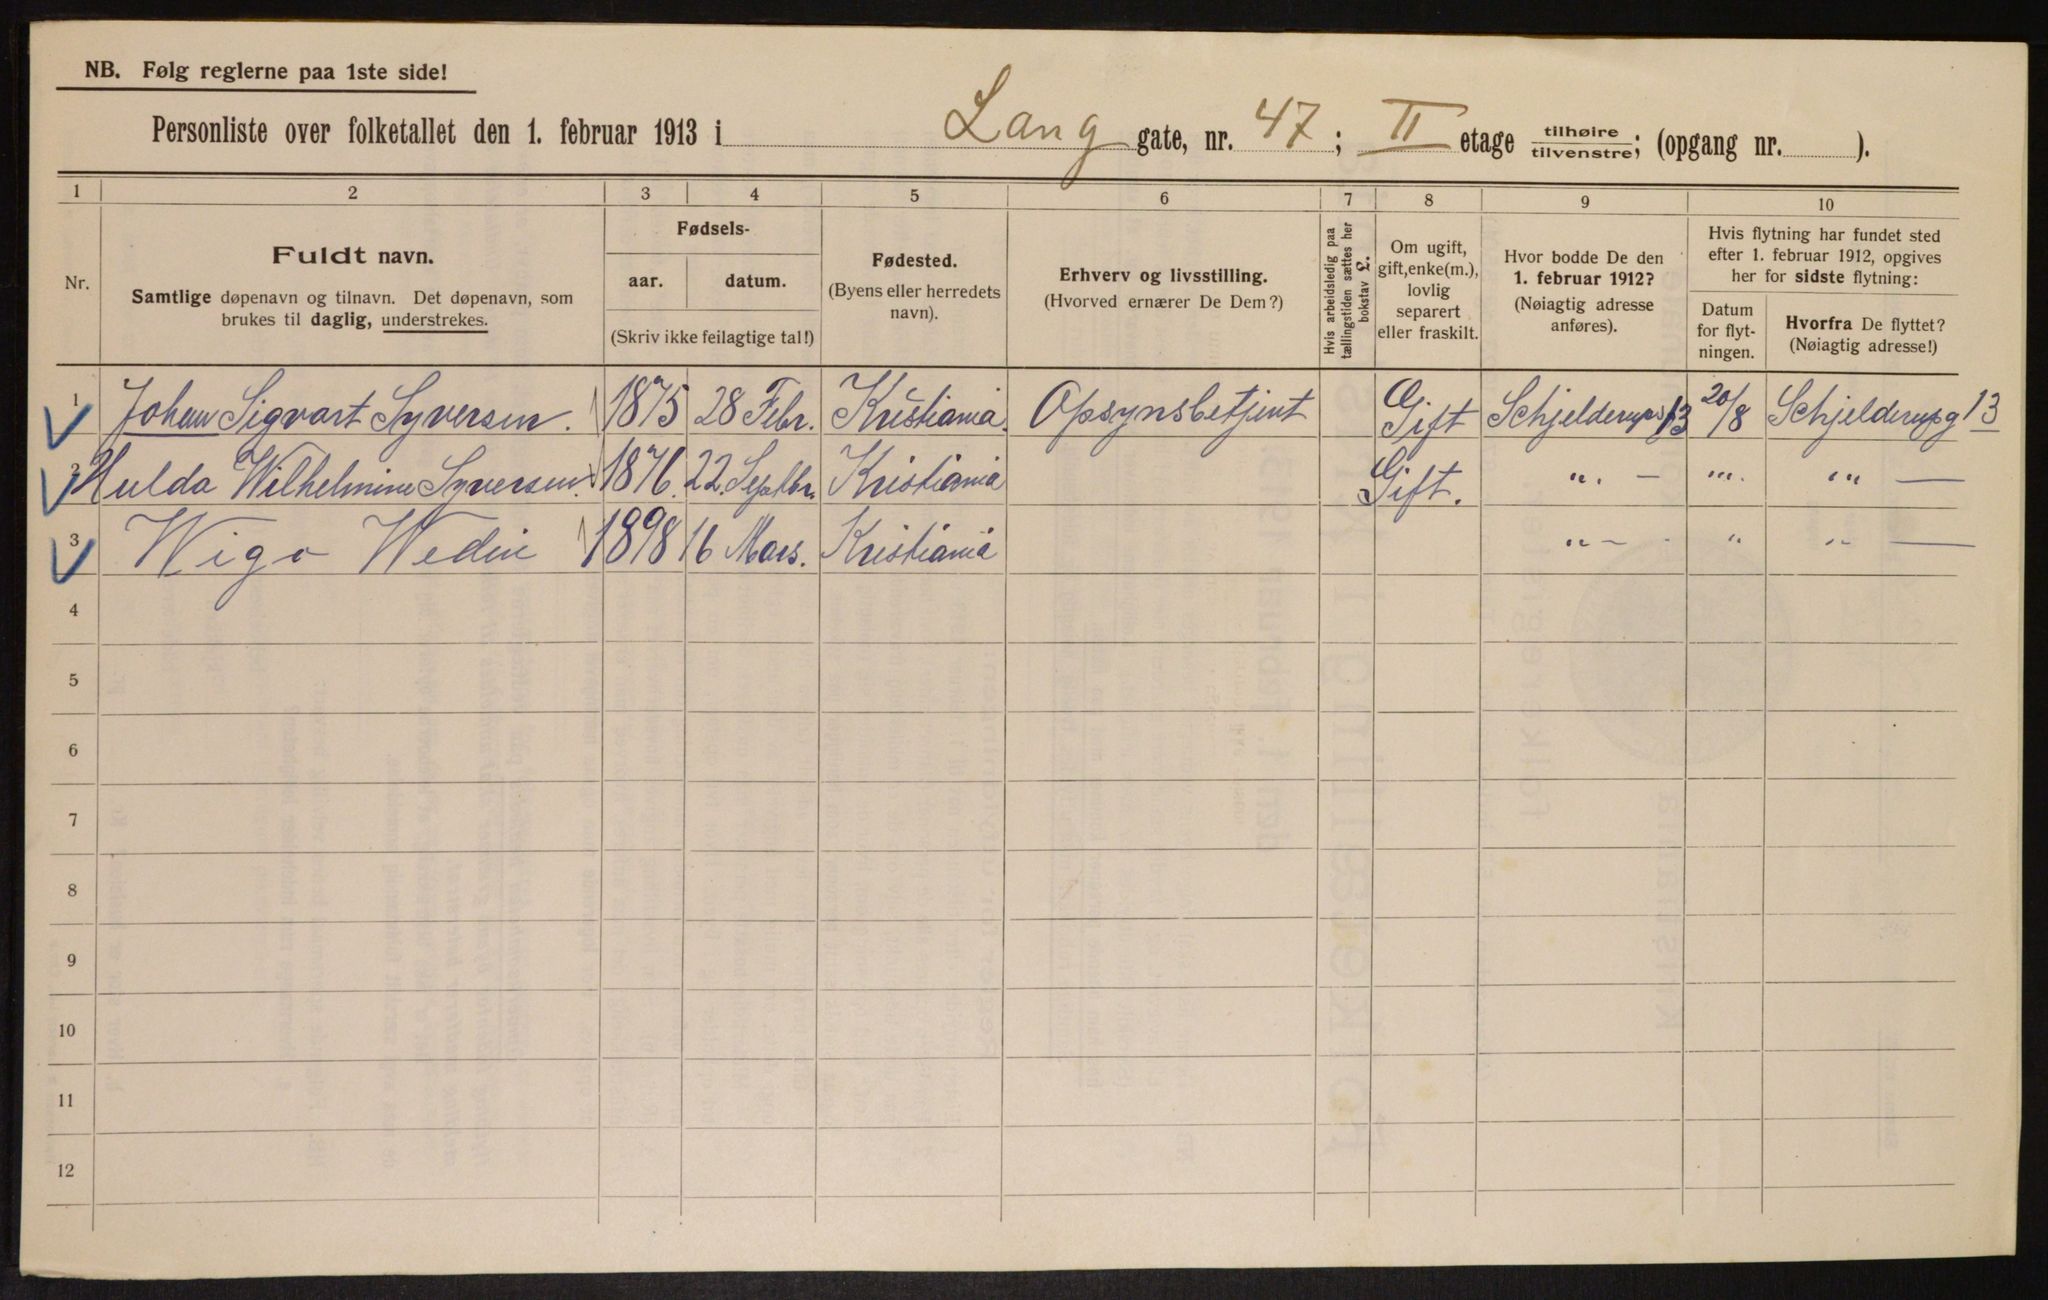 NB. Følg reglerne paa 1ste side!
Personliste over folketallet den 1. februar 1913 i Lang gate, nr. 47; II etage tilhøire tilvenstre; (opgang nr. ).
1 2 3 4 5 6 7 8 9 10
Nr.
Fuldt navn.
Samtlige døpenavn og tilnavn. Det døpenavn, som
brukes til daglig, understrekes.
Fødsels-
aar. datum.
(Skriv ikke feilagtige tal!)
Fødested.
(Byens eller herredets
navn).
Erhverv og livsstilling.
(Hvorved ernærer De Dem?)
Hvis arbeidsledig paa
tællingstiden sættes her
bokstav L.
Om ugift,
gift, enke(m.),
lovlig
separert
eller fraskilt.
Hvor bodde De den
1. februar 1912?
(Nøiagtig adresse
anføres).
Hvis flytning har fundet sted
efter 1. februar 1912, opgives
her for sidste flytning:
Datum
for flyt-
ningen.
Hvorfra De flyttet?
(Nøiagtig adresse!)
1 Johan Sigvart Syversen. 1875 28 Febr. Kristiania. Opsynsbetjent Gift Schjelderupsg 13 20/8 Schjelderupsg 13
2 Hulda Wilhelmine Syversen. 1876. 22. Septbr. Kristiania Gift. „ . — „ . „ —
3 Wigo Wedin 1898 16 Mars. Kristiania „ — „ „ —
4
5
6
7
8
9
10
11
12